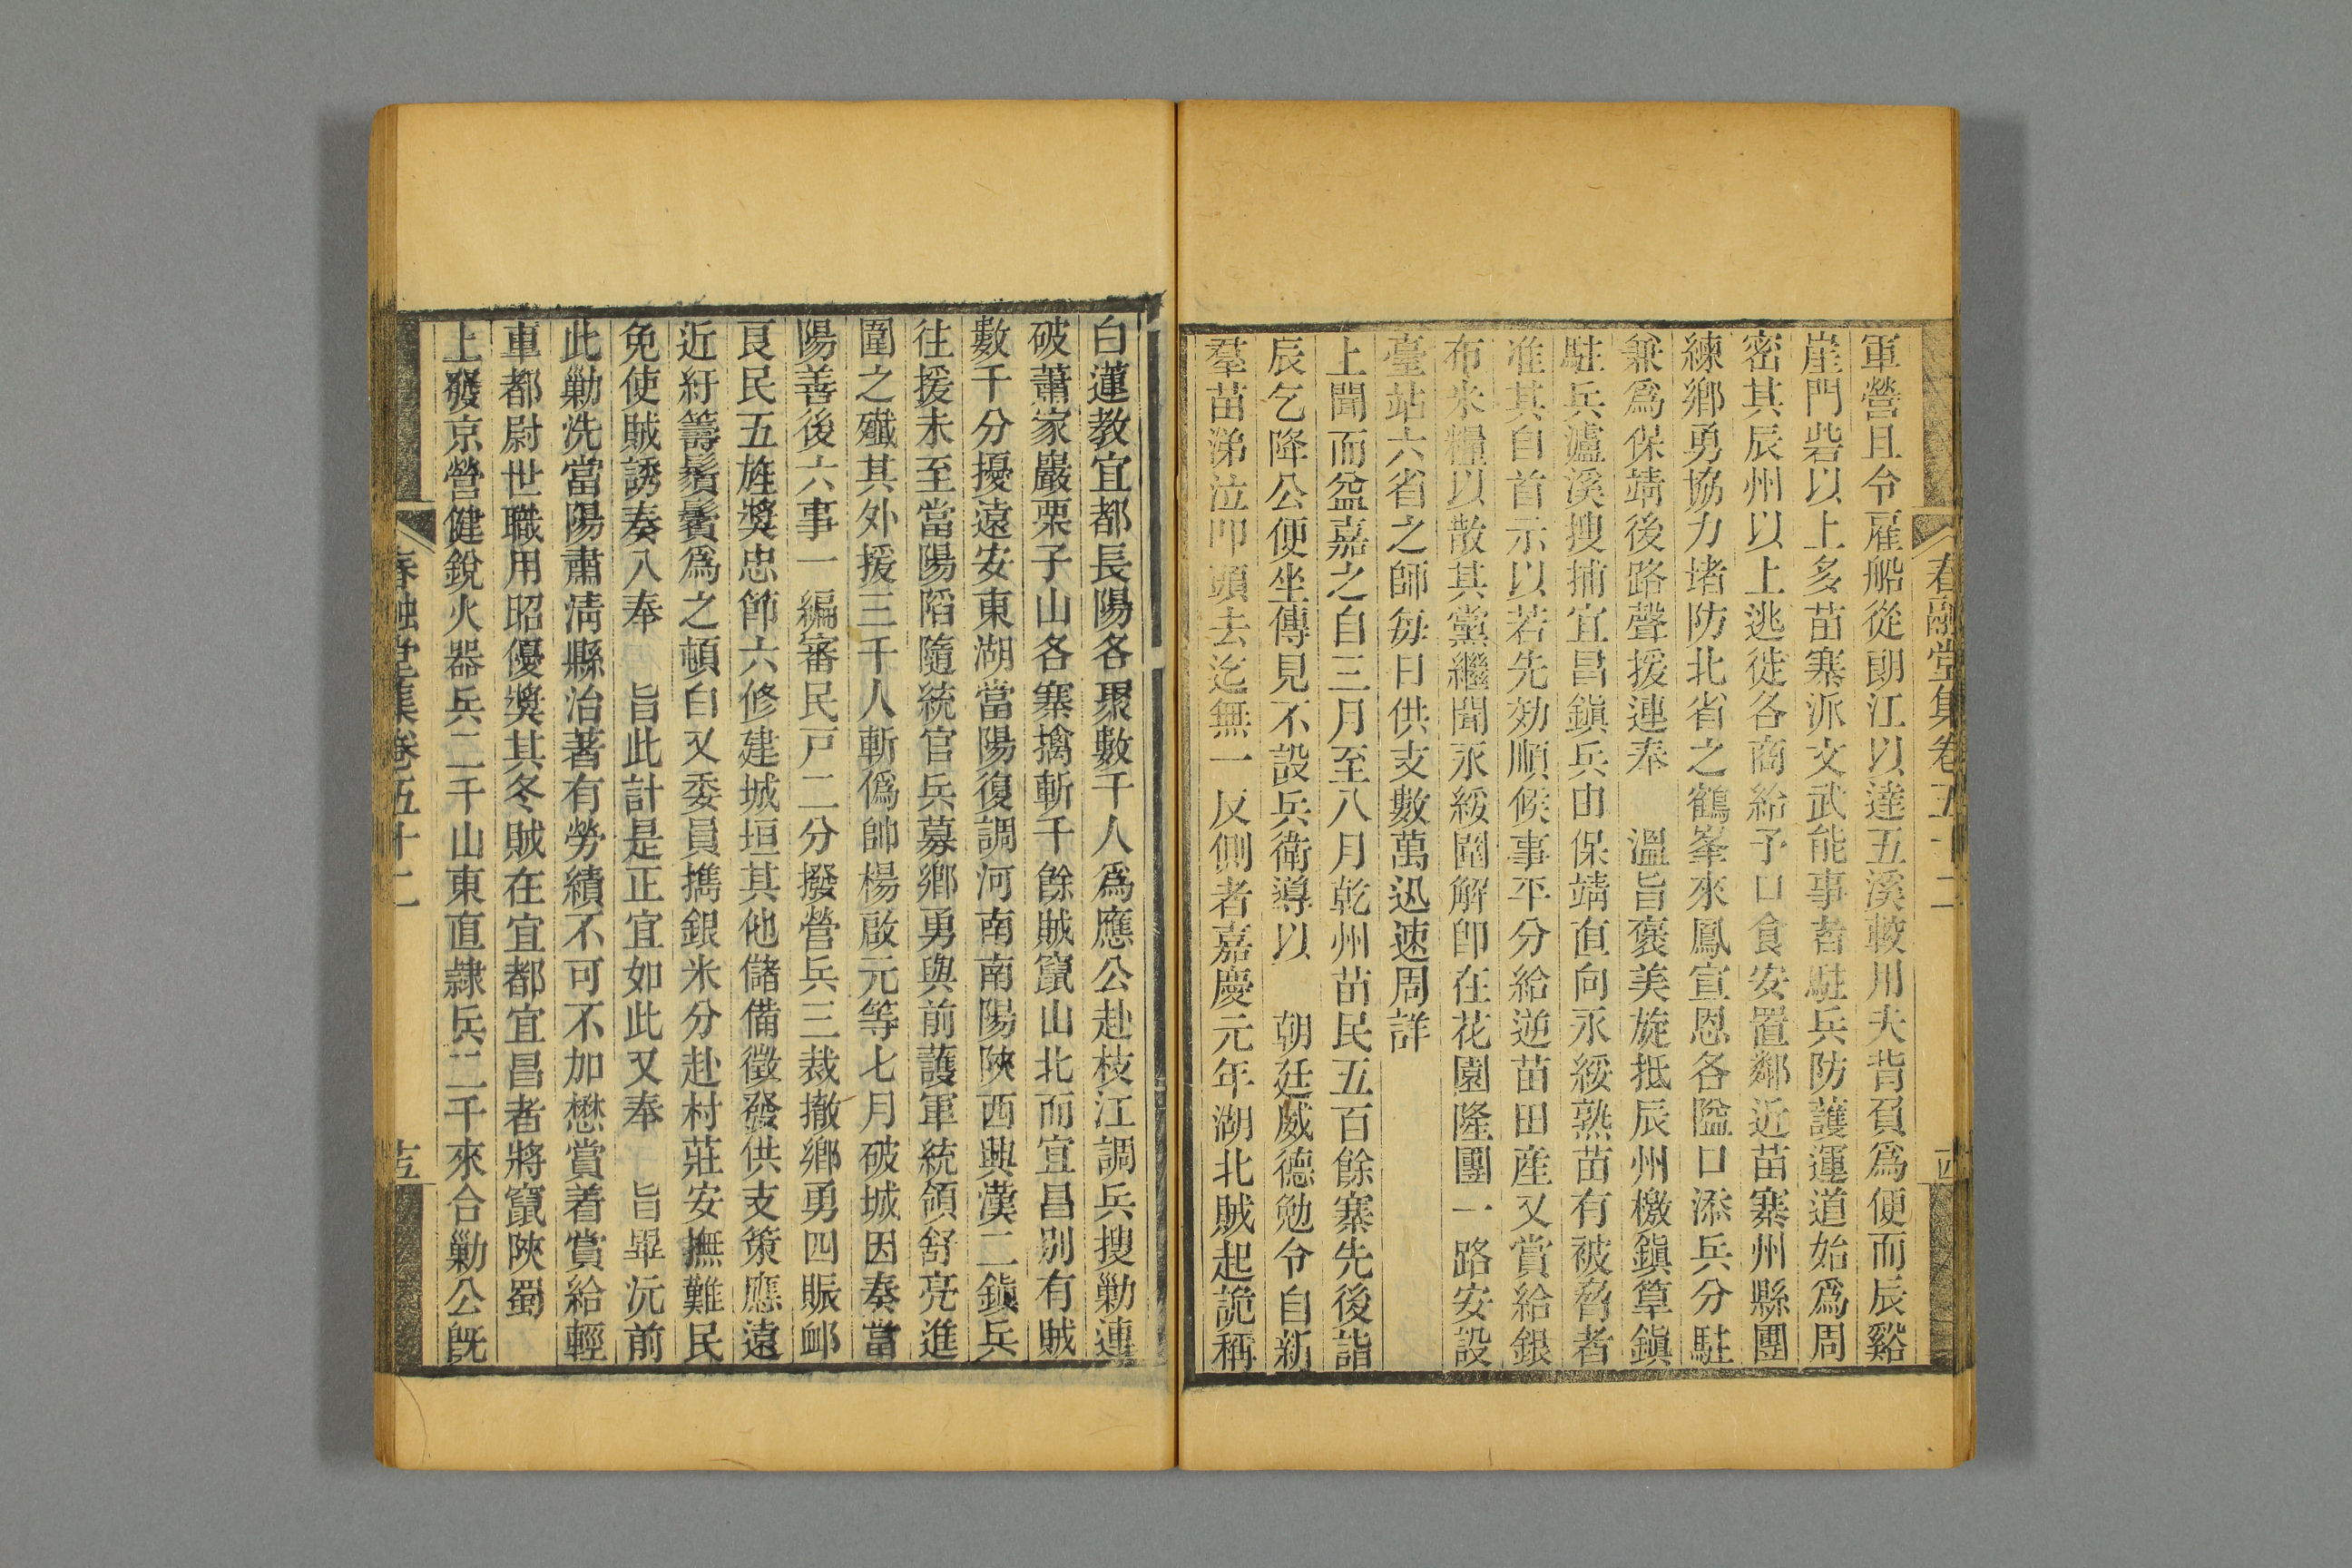 春融堂集卷五十二
軍營且令雇船從朗江以達五溪較用夫背負爲便而辰谿
崖門砦以上多苗寨派文武能事者駐兵防護運道始爲周
密其辰州以上逃徙各商給予口食安置鄰近苗寨州縣團
練鄉勇協力堵防北省之鶴峯來鳳宣恩各隘口添兵分駐
兼爲保靖後路聲援連奉 溫旨褒美旋抵辰州檄鎭筸鎭
駐兵瀘溪搜捕宜昌鎭兵由保靖直向永綏熟苗有被脅者
准其自首示以若先効順候事平分給逆苗田産又賞給銀
布米糧以散其黨繼聞永綏圍解卽在花園隆團一路安設
臺站六省之師每日供支數萬迅速周詳
上聞而益嘉之自三月至八月乾州苗民五百餘寨先後詣
辰乞降公便坐傳見不設兵衛導以 朝廷威德勉令自新
羣苗涕泣叩頭去迄無一反側者嘉慶元年湖北賊起詭稱
白蓮教宜都長陽各聚數千人爲應公赴枝江調兵搜勦連
破蕭家巖栗子山各寨擒斬千餘賊竄山北而宜昌別有賊
數千分擾遠安東湖當陽復調河南南陽陝西興漢二鎭兵
往援未至當陽陷隨統官兵募鄉勇與前護軍統領舒亮進
圍之殲其外援三千人斬僞帥楊啟元等七月破城因奏當
陽善後六事一編審民戸二分撥營兵三裁撤鄉勇四賑卹
良民五旌奬忠節六修建城垣其他儲備徵發供支策應遠
近紆籌鬚鬢爲之頓白又委員攜銀米分赴村莊安撫難民
免使賊誘奏入奉 旨此計是正宜如此又奉 旨畢沅前
此勦洗當陽肅淸縣治著有勞績不可不加懋賞着賞給輕
車都尉世職用昭優奬其冬賊在宜都宜昌者將竄陝蜀
上發京營健銳火器兵二千山東直隷兵二千來合勦公旣
春融堂集卷五十二